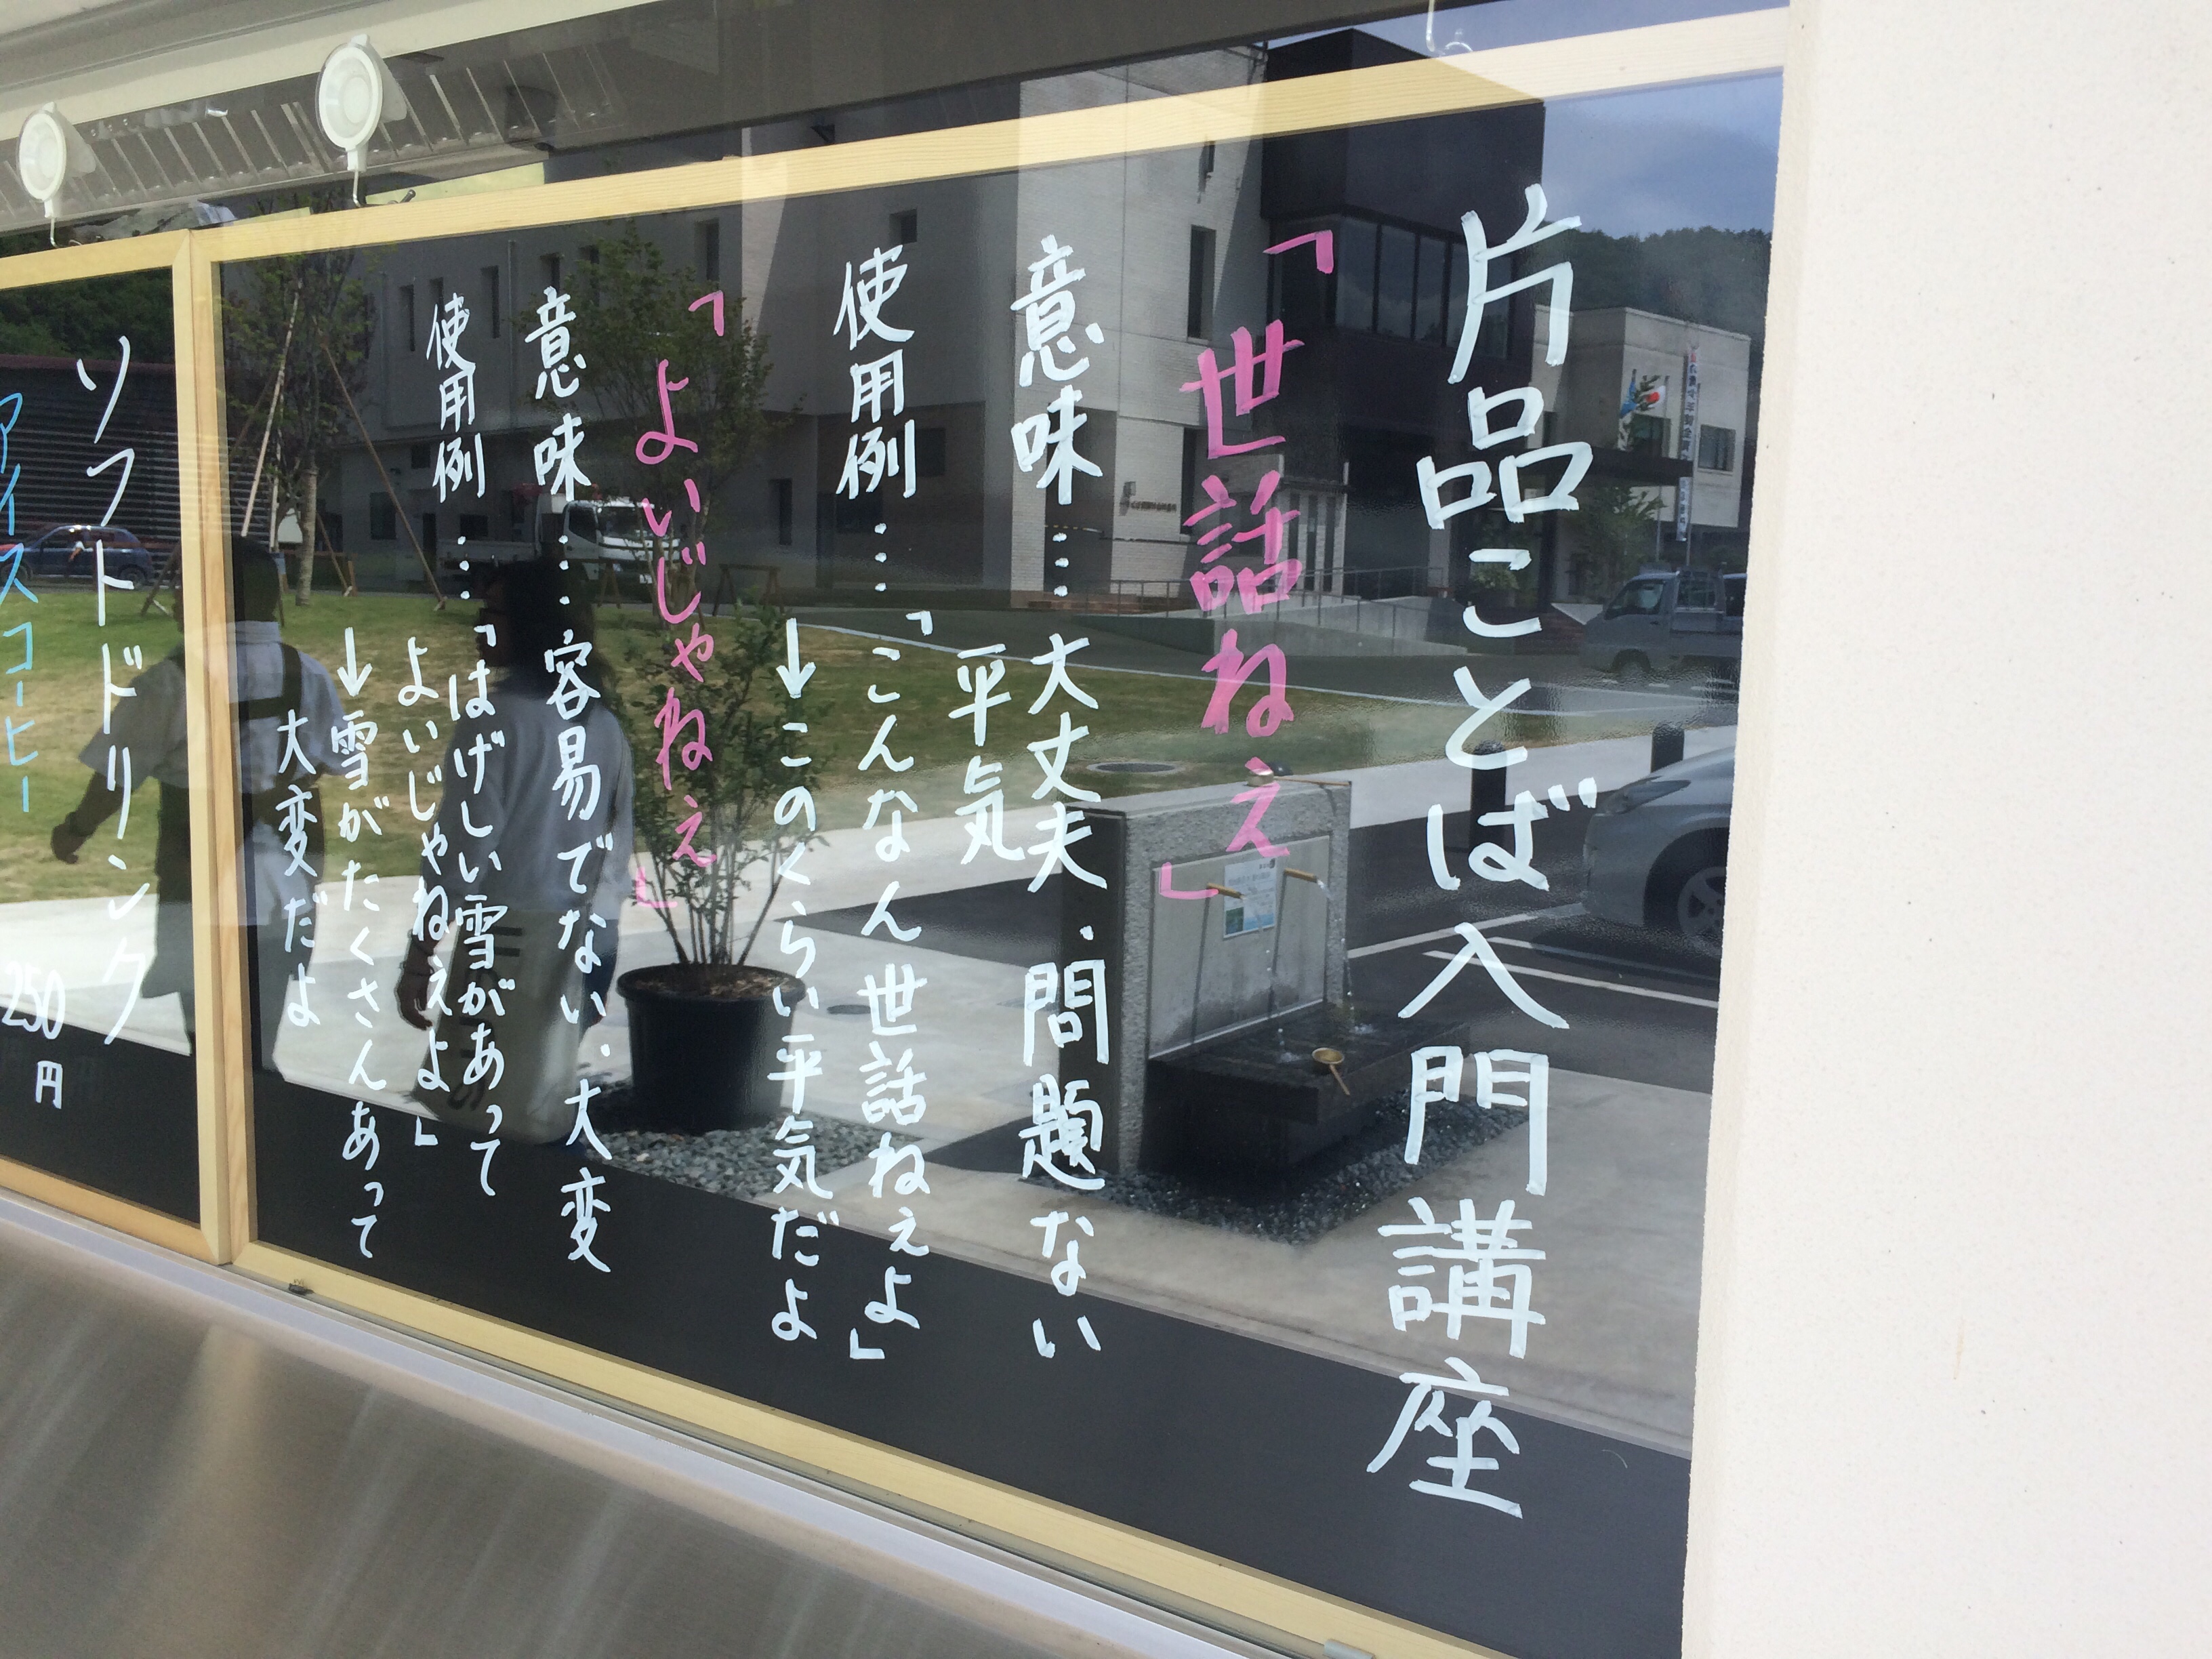 片品ことば入門講座
「世話ねえ」
意味……大丈夫・問題ない
平気
使用例……「こんなん世話ねぇよ」
→このくらい平気だよ
「よいじゃねぇ」
意味……容易でない・大変
使用例……「はげしい雪があって
よいじゃねえよ」
→雪がたくさんあって
大変だよ
ソフトドリンク
アイスコーヒー
250円